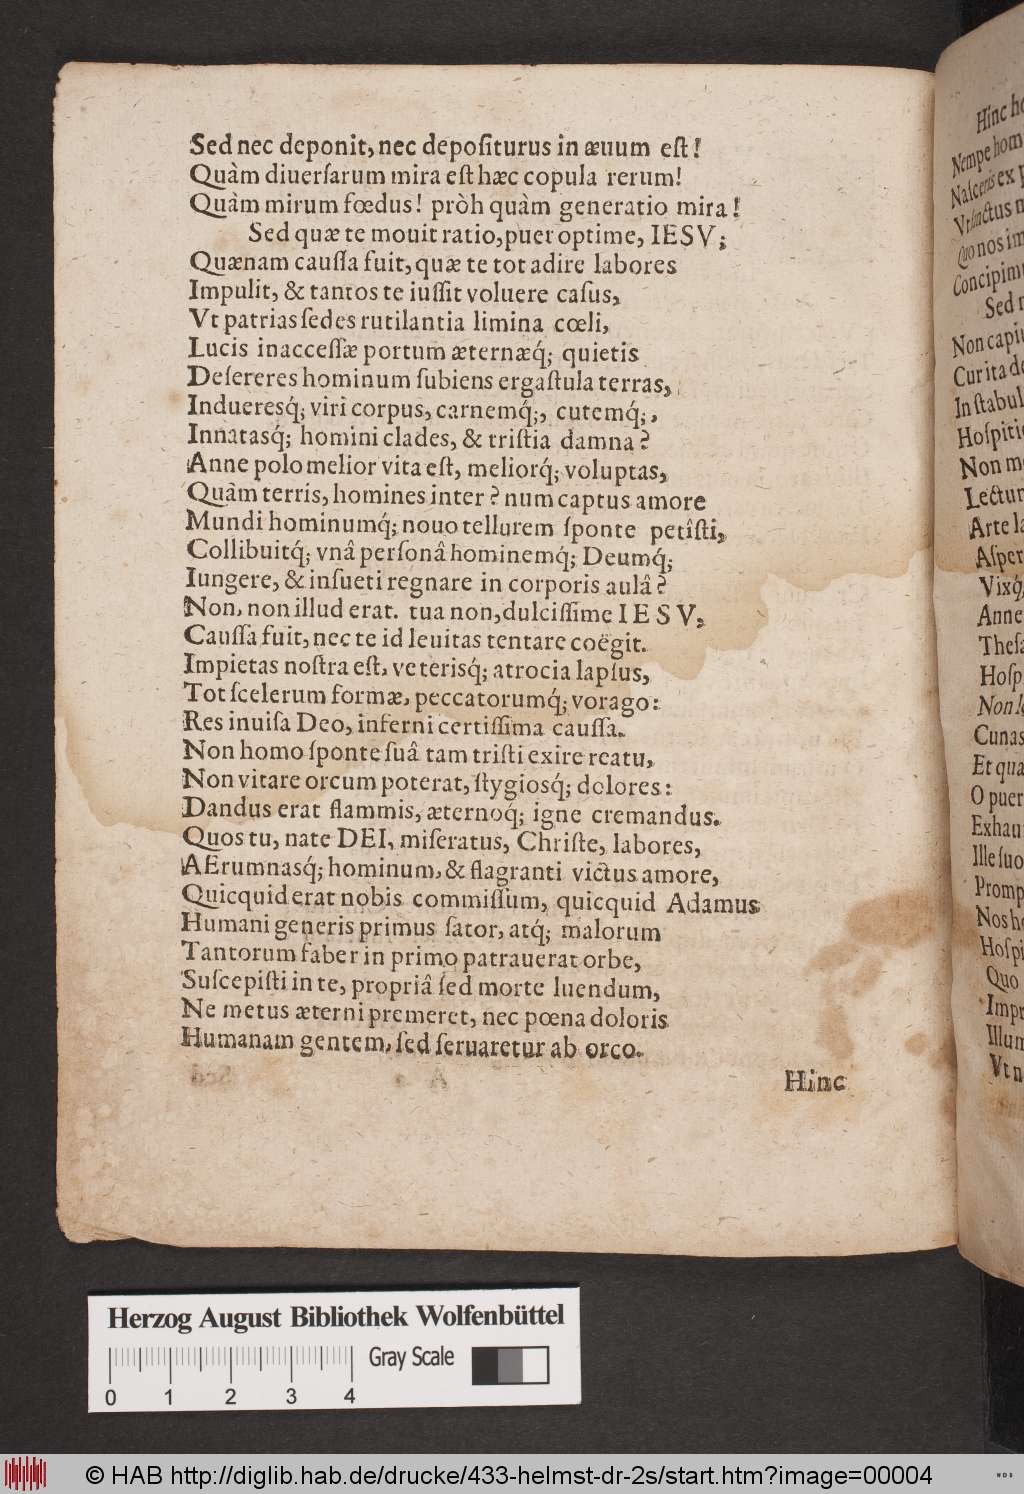 Sed nec deponit, nec depoſiturus in æuum eſt!
Quàm diuerſarum mira eſt hæc copula rerum!
Quàm mirum fœdus! pròh quàm generatio mira!
Sed quæ te mouit ratio, puer optime, IESV;
Quænam cauſſa fuit, quæ te tot adire labores
Impulit, & tantos te iuſſit voluere caſus,
Vt patrias ſedes rutilantia limina cœli,
Lucis inacceſſæ portum æternæq́; quietis
Deſereres hominum ſubiens ergaſtula terras,
Indueresq́; viri corpus, carnemq́;, cutemq́;,
Innatasq́; homini clades, & triſtia damna?
Anne polo melior vita eſt, meliorq́; voluptas,
Quàm terris, homines inter? num captus amore
Mundi hominumq́; nouo tellurem ſponte petîſti,
Collibuitq́; vnâ perſonâ hominemq́; Deumq́;
Iungere, & inſueti regnare in corporis aulâ?
Non, non illud erat. tua non, dulciſſime IESV,
Cauſſa fuit, nec te id leuitas tentare coëgit.
Impietas noſtra eſt, veterisq́; atrocia lapſus,
Tot ſcelerum formæ, peccatorumq́; vorago:
Res inuiſa Deo, inferni certiſſima cauſſa.
Non homo ſponte ſuâ tam triſti exire reatu,
Non vitare orcum poterat, ſtygiosq́; dolores:
Dandus erat flammis, æternoq́; igne cremandus.
Quos tu, nate DEI, miſeratus, Chriſte, labores,
AErumnasq́; hominum, & flagranti victus amore,
Quicquid erat nobis commiſſum, quicquid Adamus
Humani generis primus ſator, atq́; malorum
Tantorum faber in primo patrauerat orbe,
Suſcepiſti in te, propriâ ſed morte luendum,
Ne metus æterni premeret, nec pœna doloris
Humanam gentem, ſed ſeruaretur ab orco.
Hinc
Hinc
Nempe hom
Naſceris ex
Vt ſanctus
Quo nos
Concipim
Sed
Non capi
Cur ita
In ſtabul
Hoſpiti
Non
Lectur
Arte
Aſper
Vixq́;
Anne
Theſa
Hoſp
Non
Cunas
Et qua
O puer
Exhau
Ille ſuo
Promp
Nos
Hoſpi
Quo
Impr
Illum
Vt n
Herzog August Bibliothek Wolfenbüttel
Gray Scale
0 1 2 3 4
© HAB http://diglib.hab.de/drucke/433-helmst-dr-2s/start.htm?image=00004